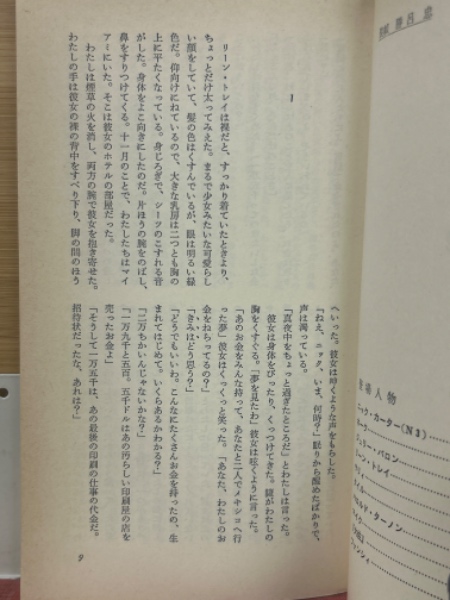 1
リーン・トレイは裸だと、すっかり着ていたときより、
ちょっとだけ太ってみえた。まるで少女みたいな可愛らし
い顔をしていて、髪の色はくすんでいるが、眼は明るい緑
色だ。仰向けにねているので、大きな乳房は二つとも胸の
上に平たくなっている。身じろぎで、シーツのこすれる音
がした。身体をよこ向きにしたのだ。片ほうの腕をのばし、
鼻をすりつけてくる。十一月のことで、わたしたちはマイ
アミにいた。そこは彼女のホテルの部屋だった。
わたしは煙草の火を消し、両方の腕で彼女を抱き寄せた。
わたしの手は彼女の裸の背中をすべり下り、脚の間のほう
へいった。彼女は呻くような声をもらした。
「ねえ、ニック、いま、何時？」眠りから醒めたばかりで、
声は濁っている。
「真夜中をちょっと過ぎたところだ」とわたしは言った。
彼女は身体をぴったり、くっつけてきた。髪がわたしの
胸をくすぐる。「夢を見たわ」彼女は呟くように言った。
「あのお金をみんな持って、あなたと二人でメキシコへ行
った夢」彼女はくっくっと笑った。「あなた、わたしのお
金をねらってるの？」
「きみはどう思う？」
「どうでもいいわ。こんなにたくさんお金を持ったの、生
まれてはじめて。いくらあるかわかる？」
「二万ちかいんじゃないかな？」
「一万九千と五百。五千ドルはあの汚らしい印刷屋の店を
売ったお金よ」
「そうして一万五千は、あの最後の印刷の仕事の代金だ。
招待状だったな、あれは？」
9
登場人物
ニック・カーター(N3)
ホーク
ジェリー・バロン
リーン・トレイ